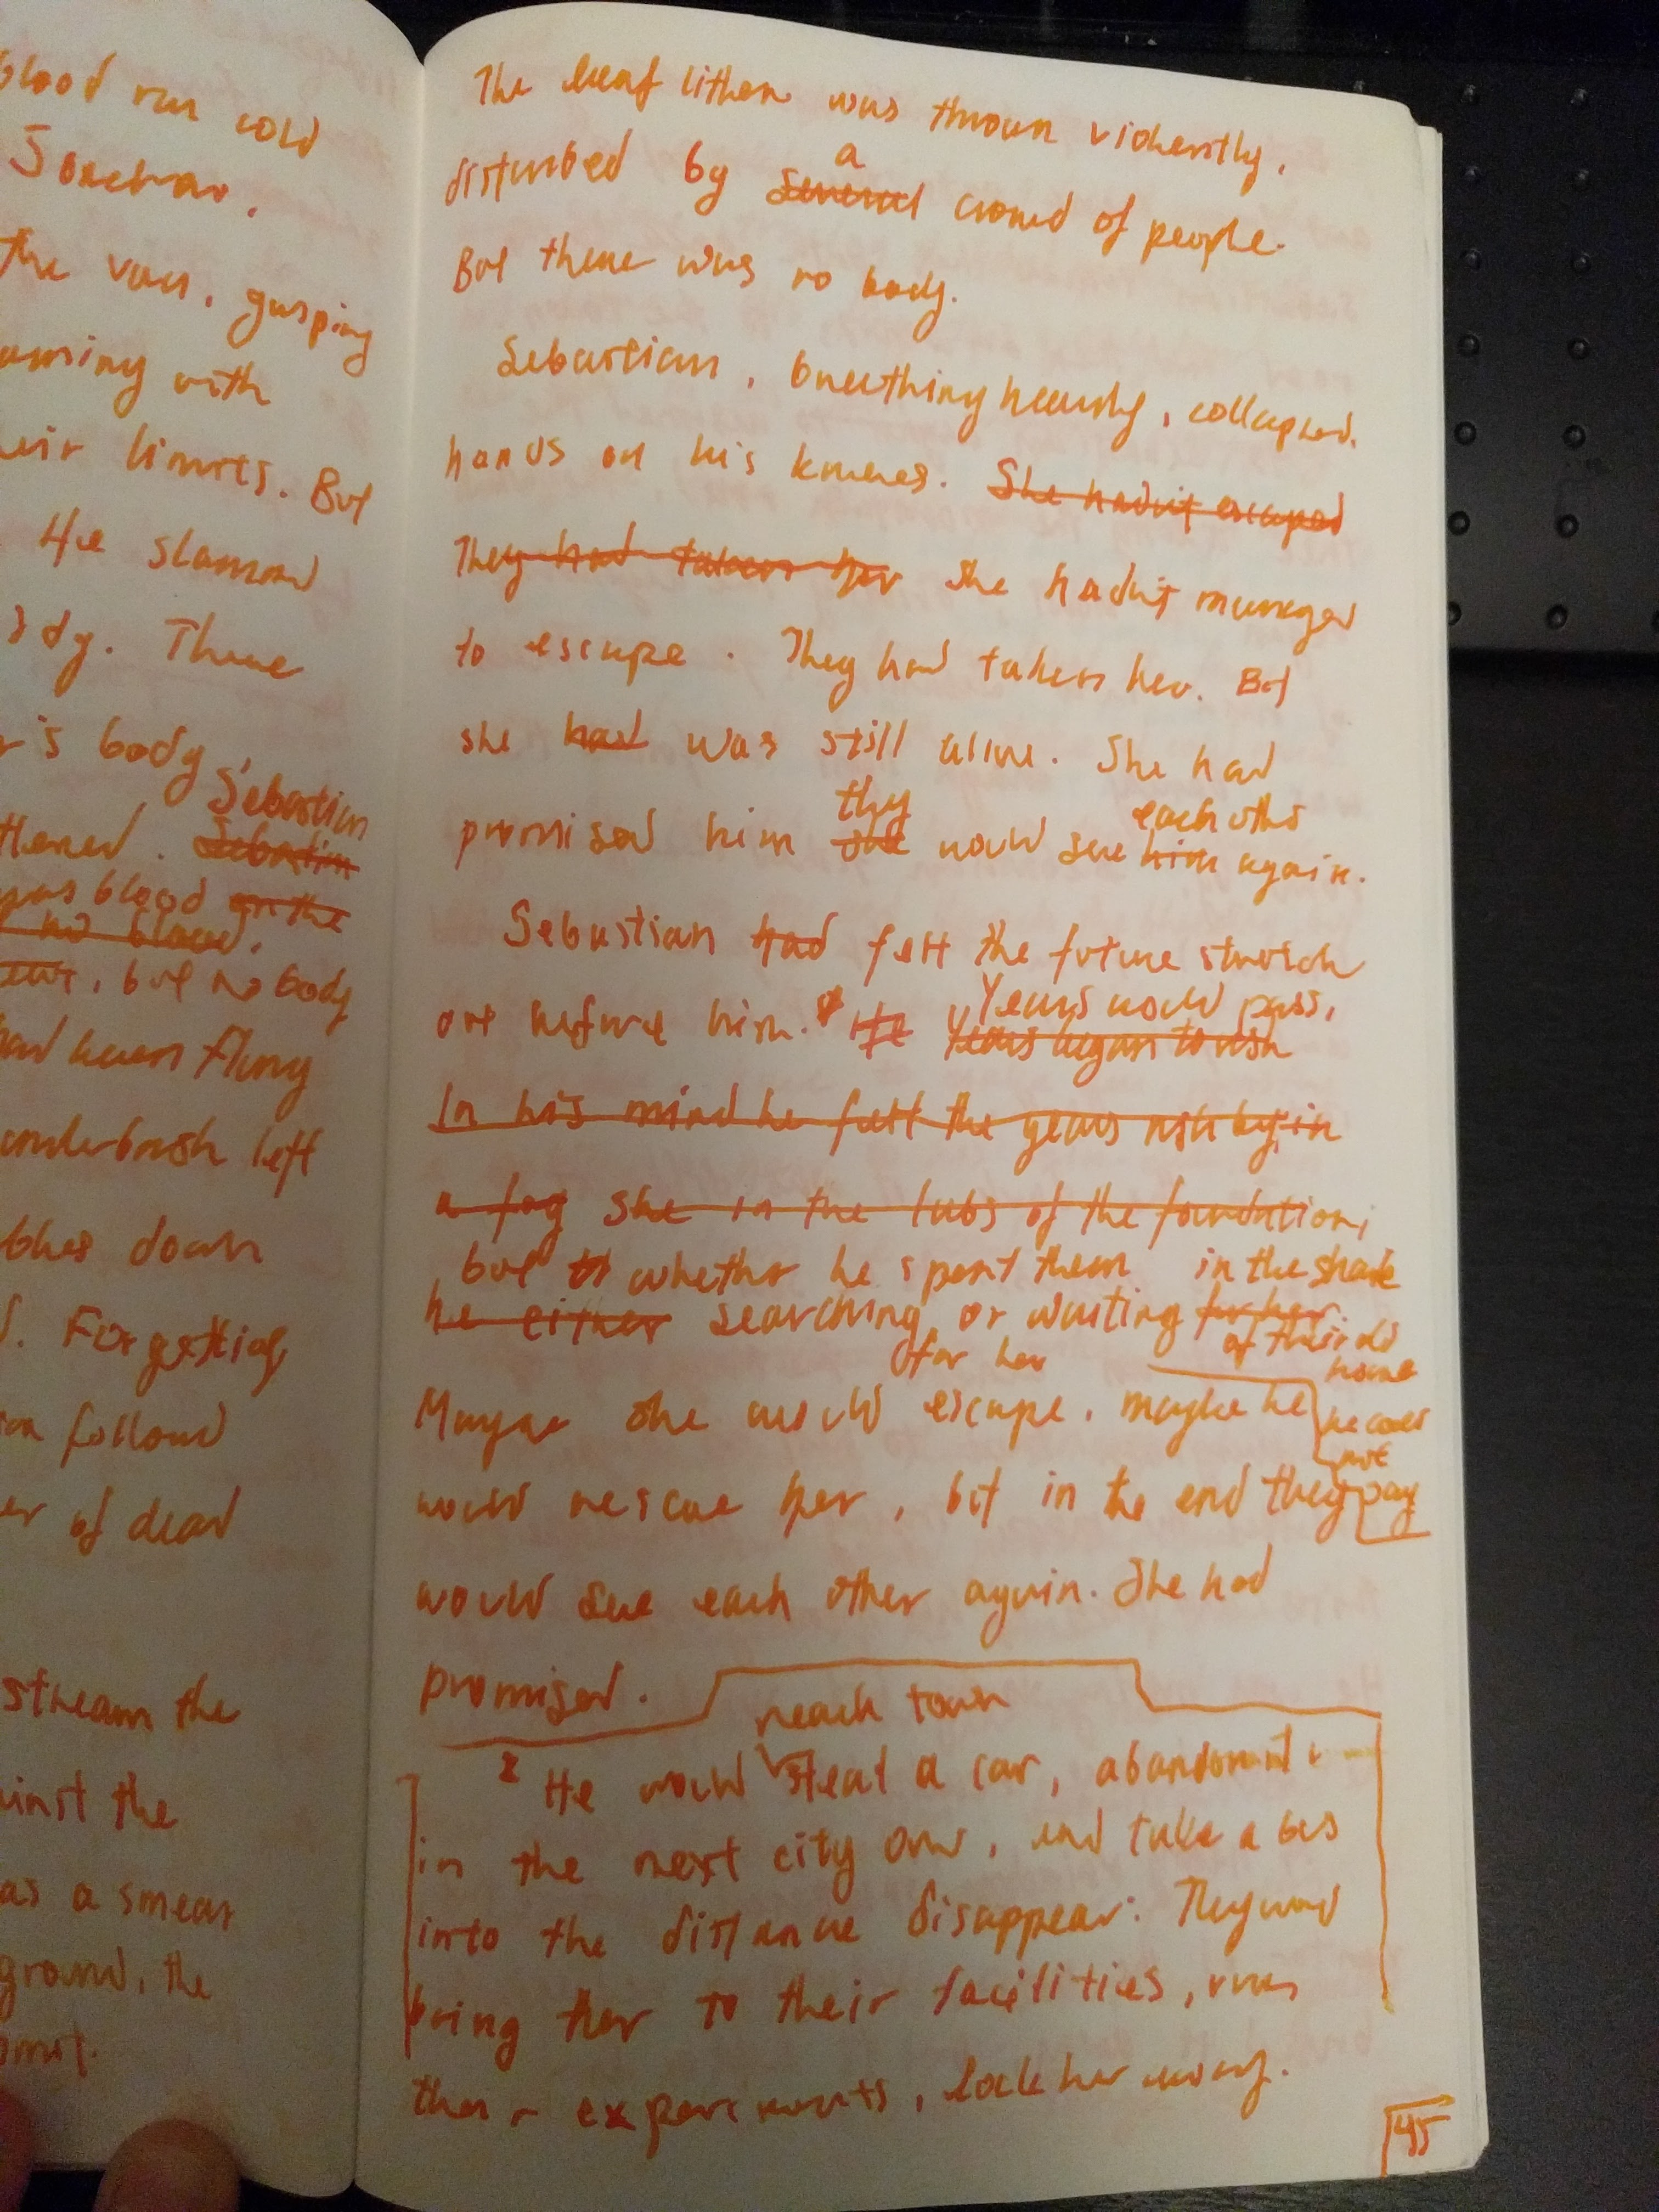 blood run cold
the van, gasping
with
limits. But
He slammed
There
's body,
Sebastian
Sebastian
was blood on the
no blood.
, but no body
had been flung
underbrush left
down
Forgetting
follow
of dead
stream the
the
as a smear
ground, the
The leaf litter was thrown violently,
disturbed by a
several crowd of people.
But there was no body.
Sebastian, breathing heavily, collapsed,
hands on his knees. She hadn't escaped
They had taken her She hadn't managed
to escape. They had taken her. But
she had was still alive. She had
they each other
promised him she would see him again.
Sebastian had felt the future stretch
Years would pass,
out before him. He years began to rush
In his mind he felt the years rush by, in
a fog She in the labs of the foundation,
, but whether he spent them in the shade
he either searching or waiting for her.
for her of their old
home
Maybe she would escape, maybe he
he could
not
would rescue her, but in the end they pay
would see each other again. She had
promised.
reach town
He would steal a car, abandon it
in the next city over, and take a bus
into the distance disappear. They would
bring her to their facilities, run
their experiments, lock her away.
45